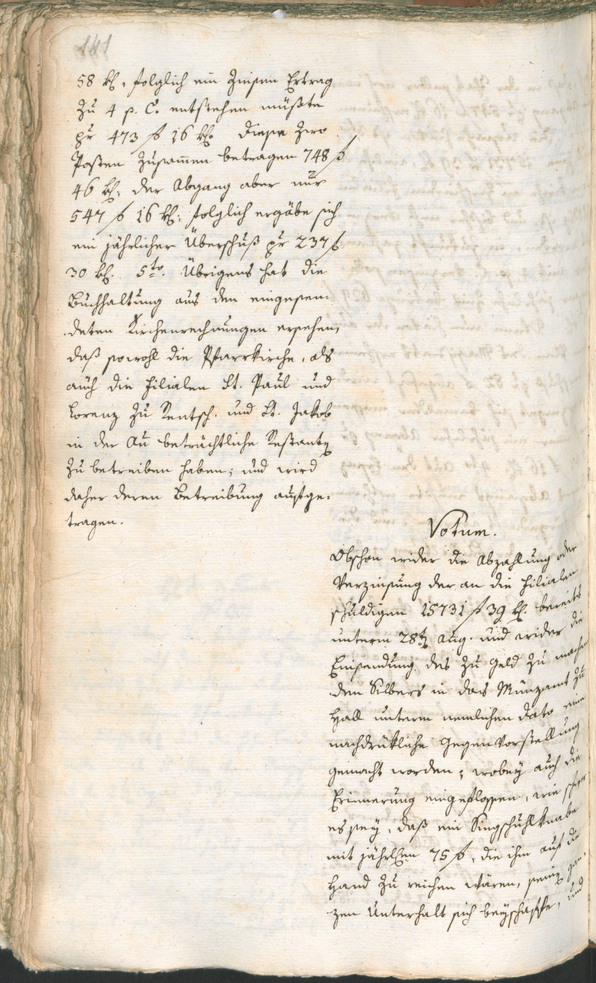 141
58 kr, folglich ein Zinsen Ertrag
zu 4 p. C. entstehen müßte
pr 473 f 16 kr. Diese zwo
Posten zusammen betragen 748 f
46 kr; der Abgang aber nur
547 f 16 kr; folglich ergäbe sich
ein jährlicher Überschuß pr 237 f
30 kr. 5to. Übrigens hat die
Buchhaltung aus den eingesen-
deten Kirchenrechnungen ersehen,
daß sowohl die Pfarrkirche, als
auch die Filialen St. Paul und
Lorenz zu Rentsch, und St. Jakob
in der Au beträchtliche Restanten
zu betreiben haben; und wird
daher deren Betreibung aufge-
tragen.
Votum.
Obschon wider die Abzahlung oder
Verzinsung der an die Filialen
schuldigen 15731 f 39 kr. bereits
unterm 28t Aug. und wider die
Einsendung des zu Geld zu machen
den Silbers in das Münzamt zu
Hall unterm nemlichen dato eine
nachdrükliche Gegenvorstellung
gemacht worden; wobey auch die
Erinnerung eingeflossen, wie
es sey, daß ein Singschuhlknabe
mit jährlichen 75 f, die ihm auf die
Hand zu reichen wären, seinen gan-
zen Unterhalt sich beyschaffe, und